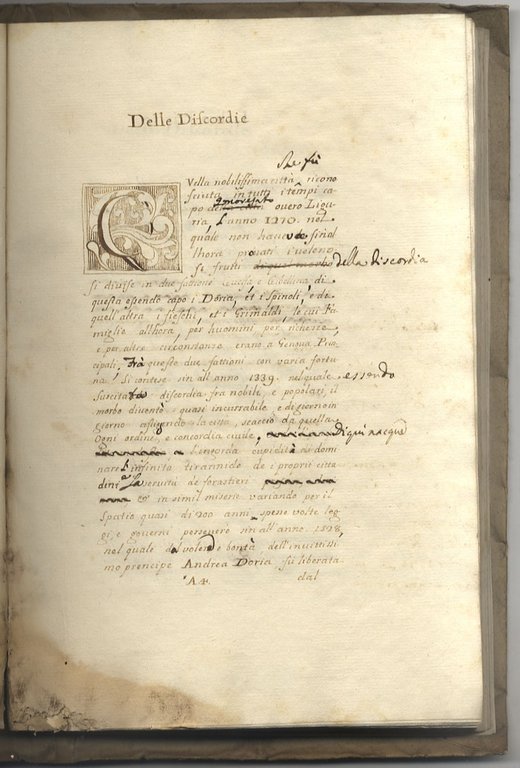 Delle Discordie
che fù
QVella nobilissima città, ricono
sciuta in tutti i tempi ca
po overo Ligu
ria l'anno 1270. nel
quale non haveva sin'al
l'hora provati i veleno
si frutti della discordia
si divise in due fattione Guelfa e Gibellina di
questa essendo capo i Doria, et i Spinoli, e de
quell'altra i fieschi, et i Grimaldi, le cui Fa
miglie allhora, per huomini per richezze,
e per altre circonstanze erano a Genova Prin
cipali. Frà queste due fattioni con varia fortu
na si contese sin all'anno 1339. nel quale essendo
suscitata discordia fra nobili, e popolari, il
morbo diventò quasi incurabile, e di giorno in
giorno affligendo la città, scacciò da quella
Ogni ordine, e concordia civile, Di qui nacque
l'ingorda cupidità di domi
nare l'infinito tirannide de i proprii citta
dini la servitù de forastieri
et in simil miserie variando per il
Spatio quasi di 200 anni spesse volte leg
gi, e governi perseverò sin all'anno 1528,
nel quale dal valore e bontà dell'invittissi
mo prencipe Andrea Doria fù liberata
A 4. dal